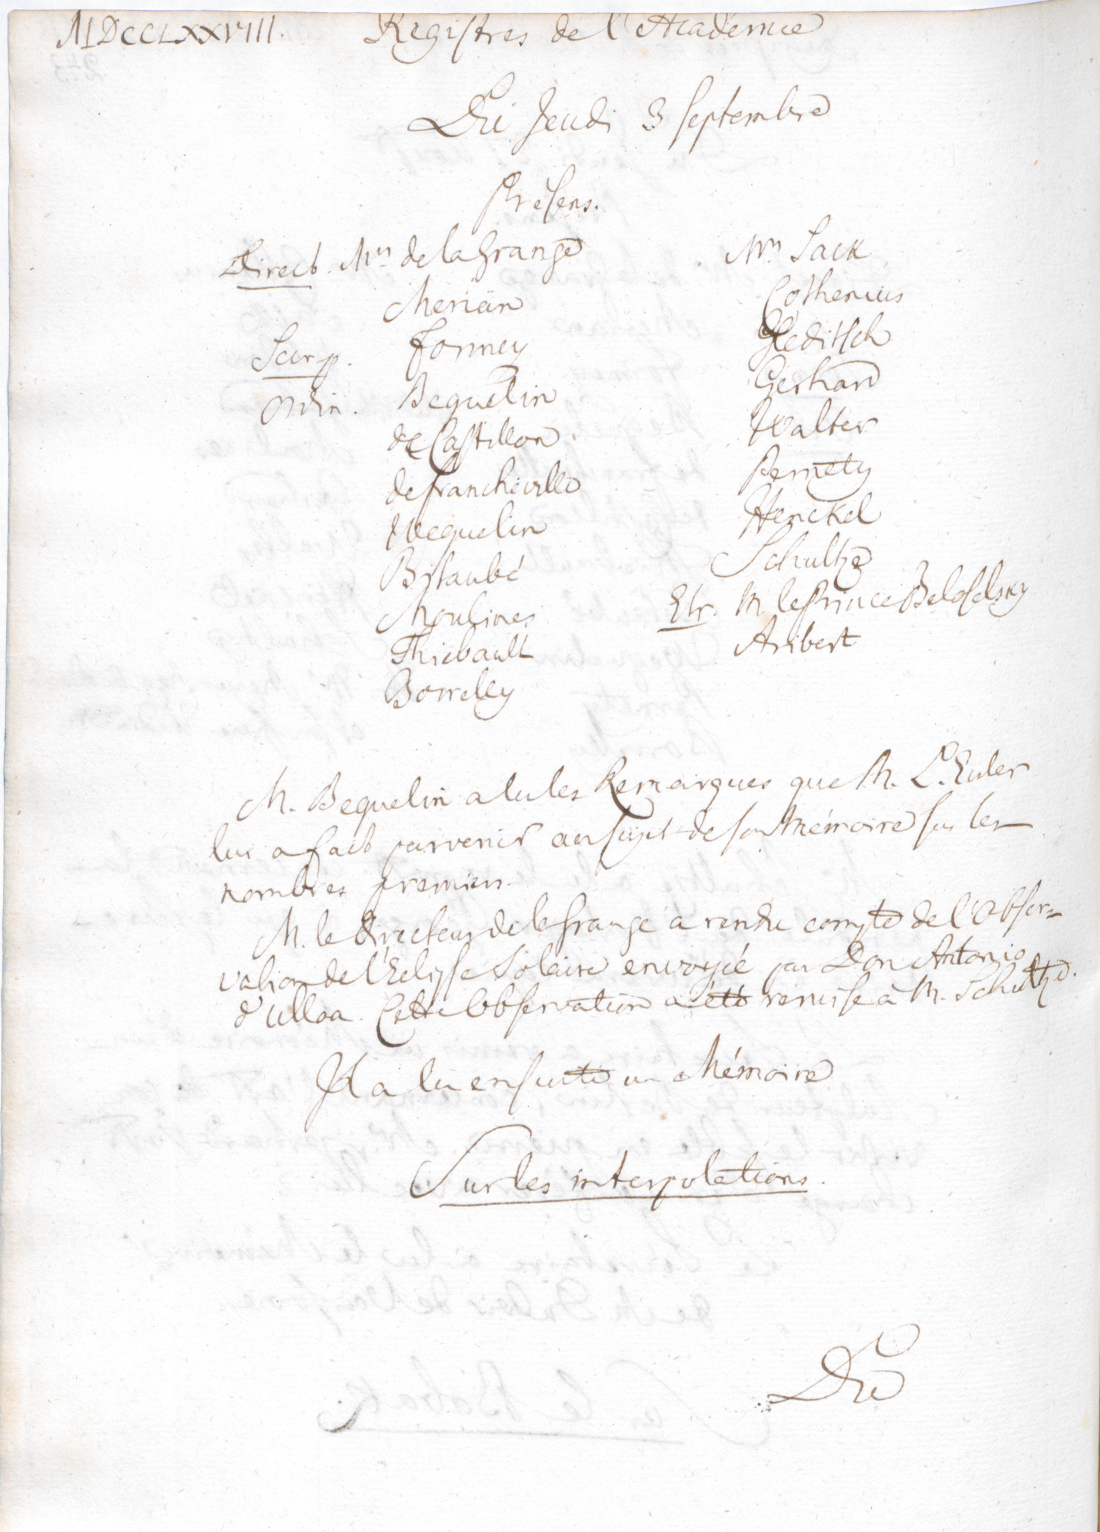 MDCCLXXVIII. Registres de l'Academie
Du Jeudi 3 Septembre
Presens.
Direct. Mrs de la Grange
Merian
Secr. p. Formey
Ordin. Beguelin
de Castillon
de Francheville
Weguelin
Bitaubé
Moulines
Thiebault
Borrelly
Mrs Sack
Cothenius
Gleditsch
Gerhard
Walter
Pernety
Henckel
Schultze
Etr. M. le Prince Beloselsky
Aribert
M. Beguelin a lu les Remarques que M. L. Euler
lui a fait parvenir au sujet de son Mémoire sur les
nombres premiers.
M. le Directeur de la Grange a rendu compte de l'Obser=
vation de l'Eclipse Solaire envoyée par Don Antonio
d'Ulloa. Cette Observation a été remise à M. Schultze.
Il a lu ensuite un Mémoire
Sur les interpolations.
Du